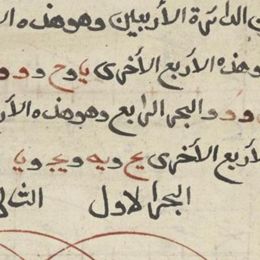 الدائرة الأربعين وهو هذه الا
وهذه الأربع الأخرى يا و ح و د و
و د و البحر الرابع وهو هذه الأر
لأربع الأخرى يح و يه و يج و يا
البحر الاول الثا